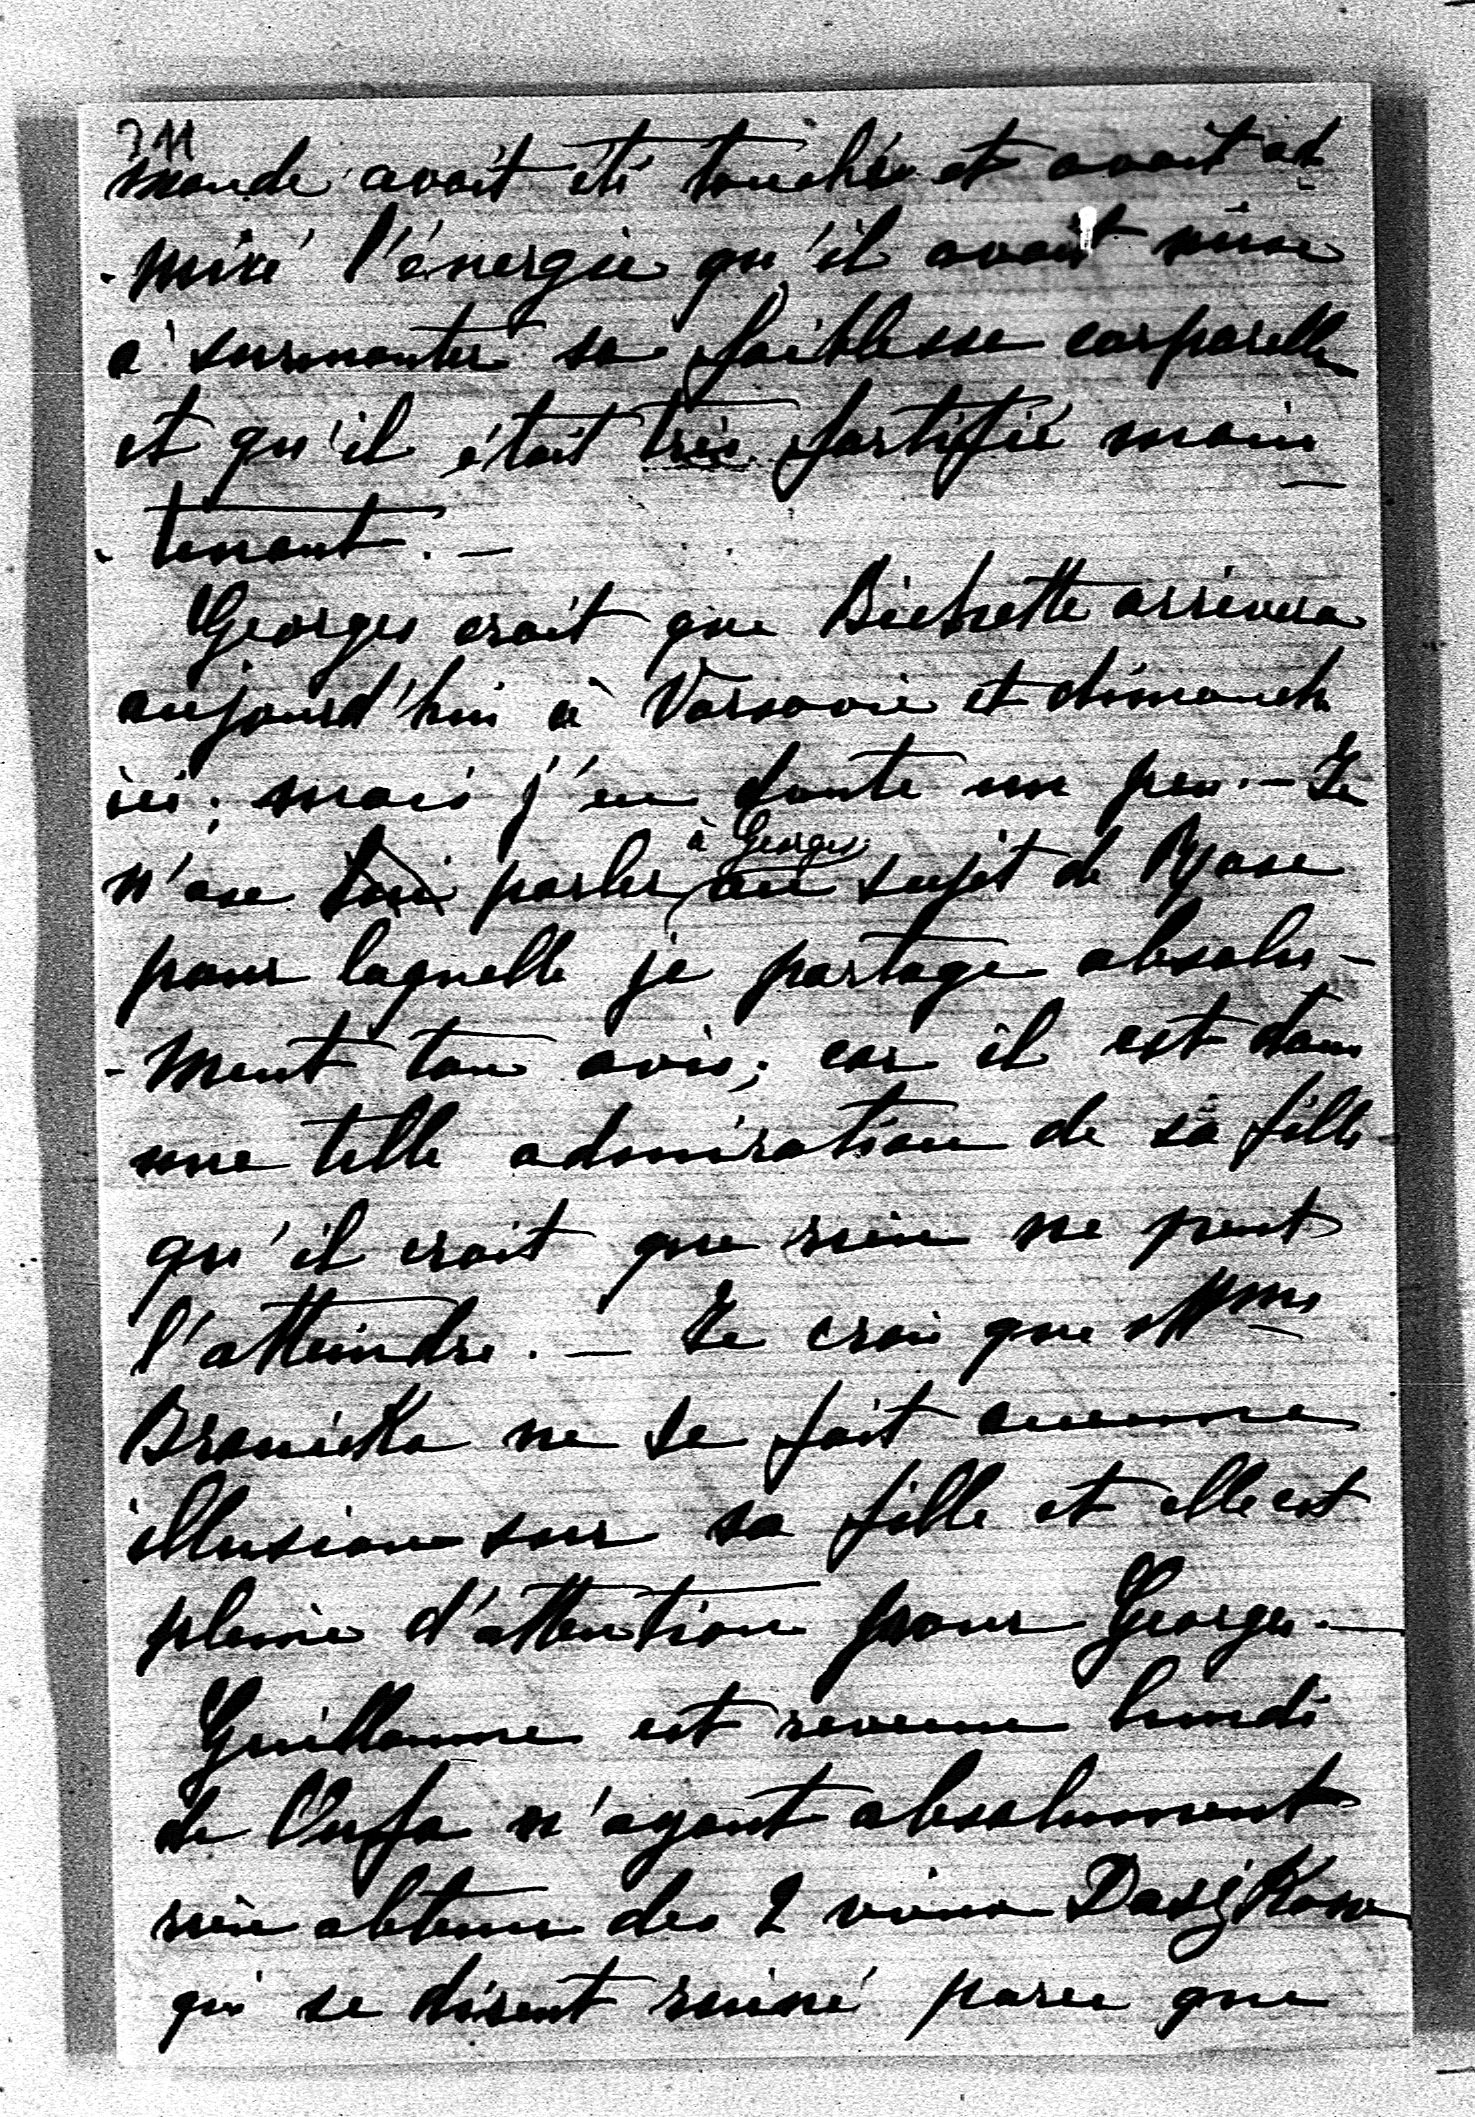 211
monde avait été touché et avait ad
-miré l'énergie qu'il avait mise
à surmonter sa faiblesse corporelle
et qu'il était très fortifié main
-tenant. —
Georges croit que Bichette arrivera
aujourd'hui à Varsovie et dimanche
ici; mais j'en doute un peu. — Je
à Georges
n'ose lui parler au sujet de Rose
pour laquelle je partage absolu-
-ment ton avis; car il est dans
une telle admiration de sa fille
qu'il croit que rien ne peut
l'atteindre. — Je crois que Mme
Branicka ne se fait aucune
illusion sur sa fille et elle est
pleine d'attention pour Georges. —
Guillaume est revenu lundi
de l'Oufa n'ayant absolument
rien obtenu des 2 Daszkow
qui se disent ruiné parce que